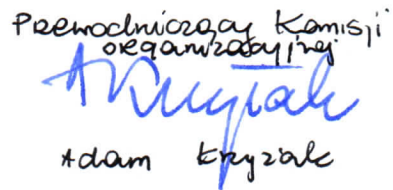 Przewodniczący Komisji
organizacyjnej
A Krzyżak
Adam Krzyżak